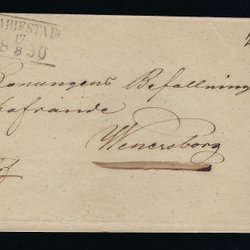 ARIESTAD
17
8
1830
Konungens Befallning
hafvande
Wenersborg